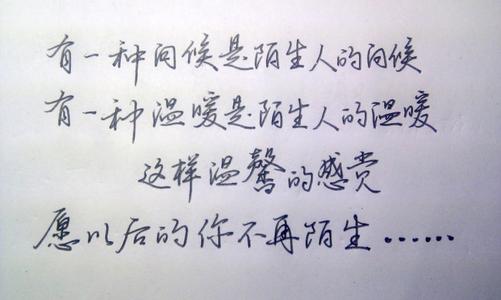 有一种问候是陌生人的问候
有一种温暖是陌生人的温暖
这样温馨的感赏
愿以后的你不再陌生……